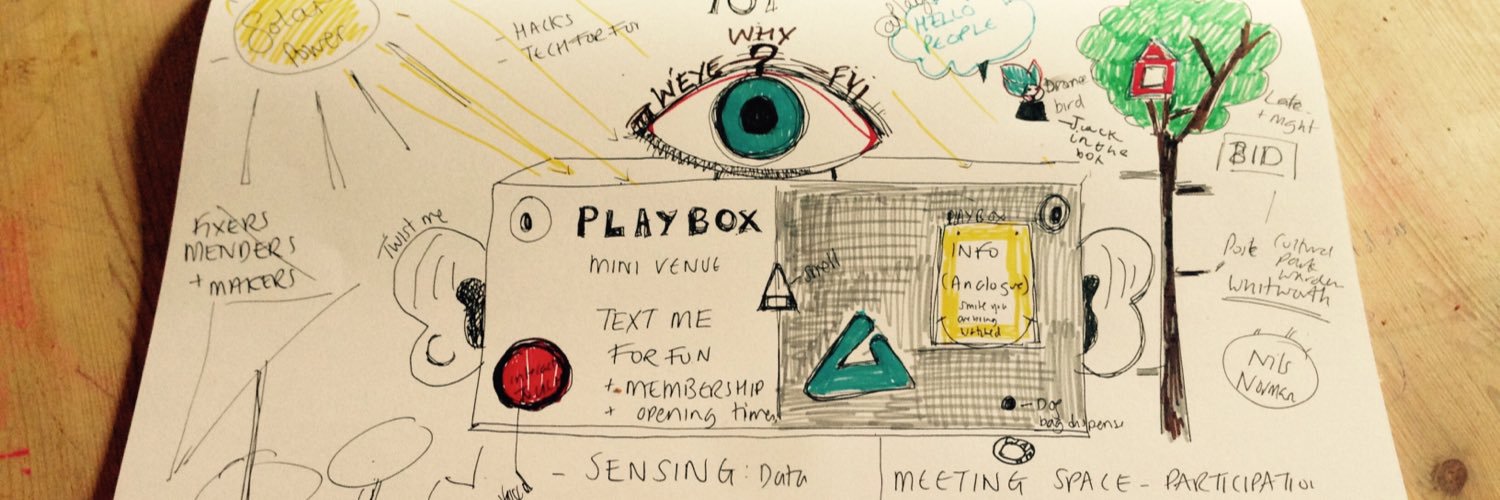 Solar
power
- HACKS
- TECH FOR FUN
WHY
?
HELLO
PEOPLE
Drone
bird
- Jack
in the
box
Late
+ night
BID
FIXERS
MENDERS
+ MAKERS
Twist me
PLAYBOX
MINI VENUE
TEXT ME
FOR FUN
+ MEMBERSHIP
+ opening times
- scroll
PLAYBOX
INFO
(Analogue)
smile you
are being
watched
- Dog
bag dispense
Cultural
Park
Warden
Whitworth
Nils
Norman
- SENSING: Data
MEETING SPACE - PARTICIPATION